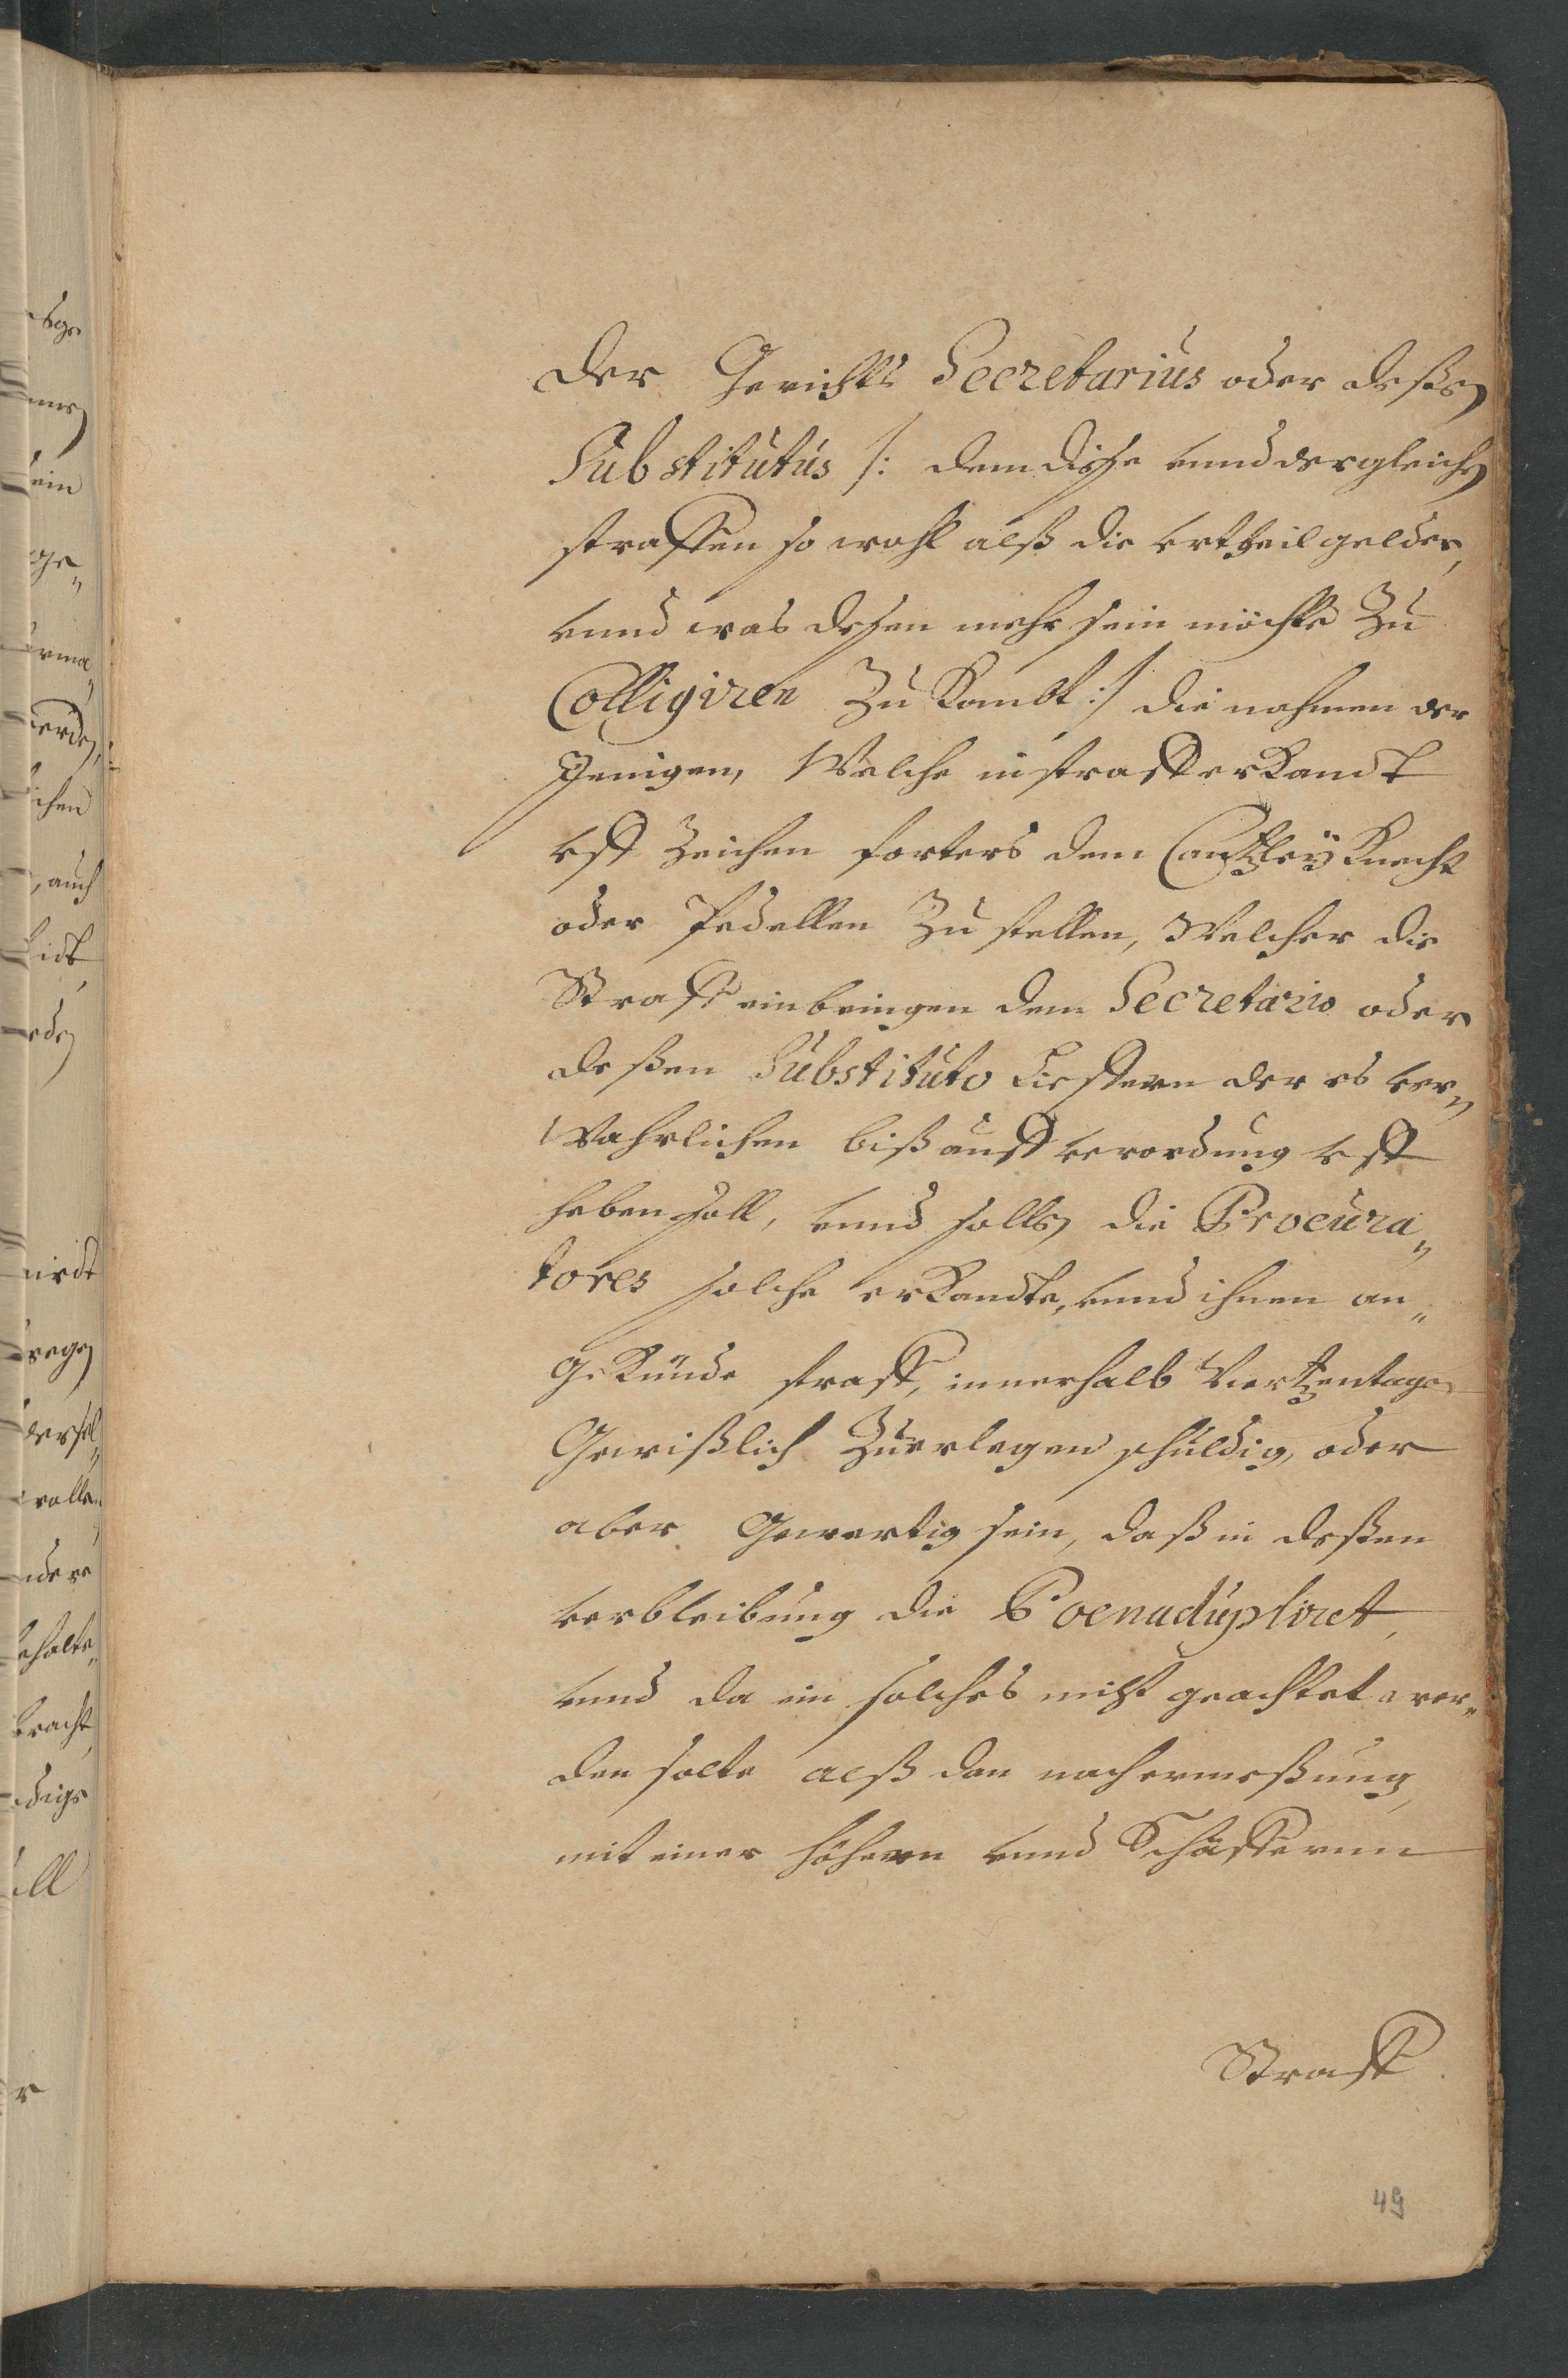 der Gerichts Secretarius oder deßen
Substitutus /: dem diße unnd dergleichen
straffen so wohl alß die vrtheil gelder,
unnd was deßen mehr sein möchte Zu
Colligiren Zu Kombt :/ die nahmen der
Jenigen, Welche in straff erKandt
vff Zeichen forters dem CantzleyKnecht
oder Pedellen Zu stellen, Welcher die
Straff einbringen dem Secretario oder
deßen Substituto Lieffern der es ver„
Wahrlichen biß auff verordung vff
heben soll, unnd sollen die Procura„
tores solche erKandte, unnd ihnen an„
geKünde straff, innerhalb Viertzentagen
Gewißlich Zu erlegen schuldig, oder
aber Gewertig sein, daß in deßen
verbleibung die Poena dupliret,
unnd da ein solches nicht geachtet wer„
den solte alß dan nach ermeßung,
mit einer höhern unnd Schäffernn
Straff
49
ge„
werden,
chen
, auch
ein
ll
r